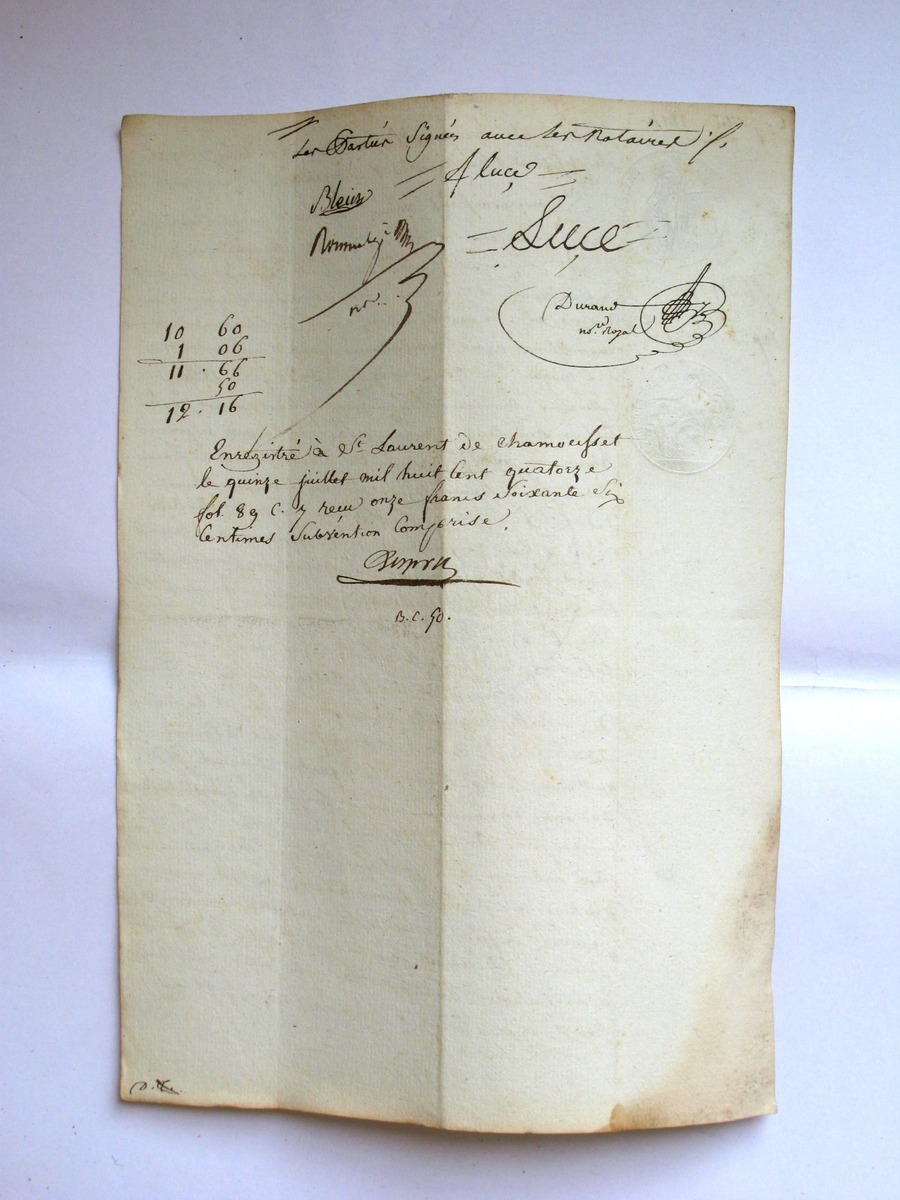 Les Parties Signées avec les Notaires ./.
A luçe
Blein
Luçe
Durand
no.re Royal
10 60
1 06
11 . 66
50
12 . 16
Enregistré à St Laurent de Chamousset
le quinze juillet mil huit Cent quatorze
fol. 89 C. 7 reçu onze francs soixante six
Centimes Subvention Comprise.
B. C. 50.